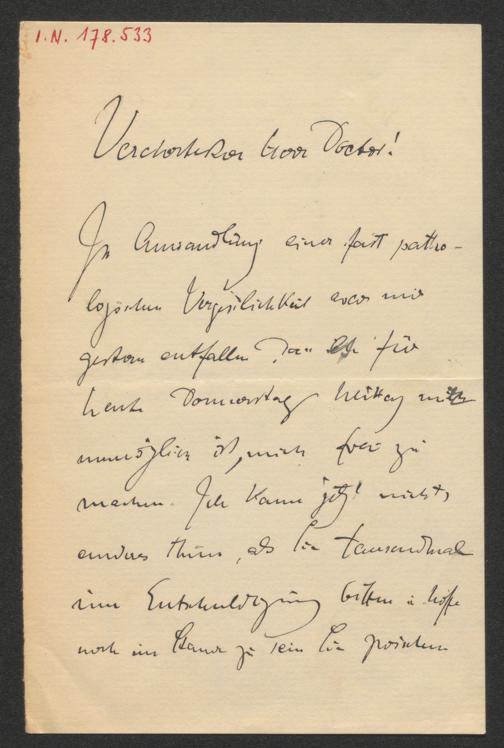 I.N. 178.533
Verehrtester Herr Doctor!
In Anwandlung einer fast patho-
logischen Vergesslichkeit war mir
gestern entfallen, dass es für
heute Donnerstag Mittag mir
unmöglich ist, mich frei zu
machen. Ich kann jetzt nichts
anderes thun, als Sie tausendmal
um Entschuldigung bitten u hoffe
noch im Stande zu sein Sie zwischen